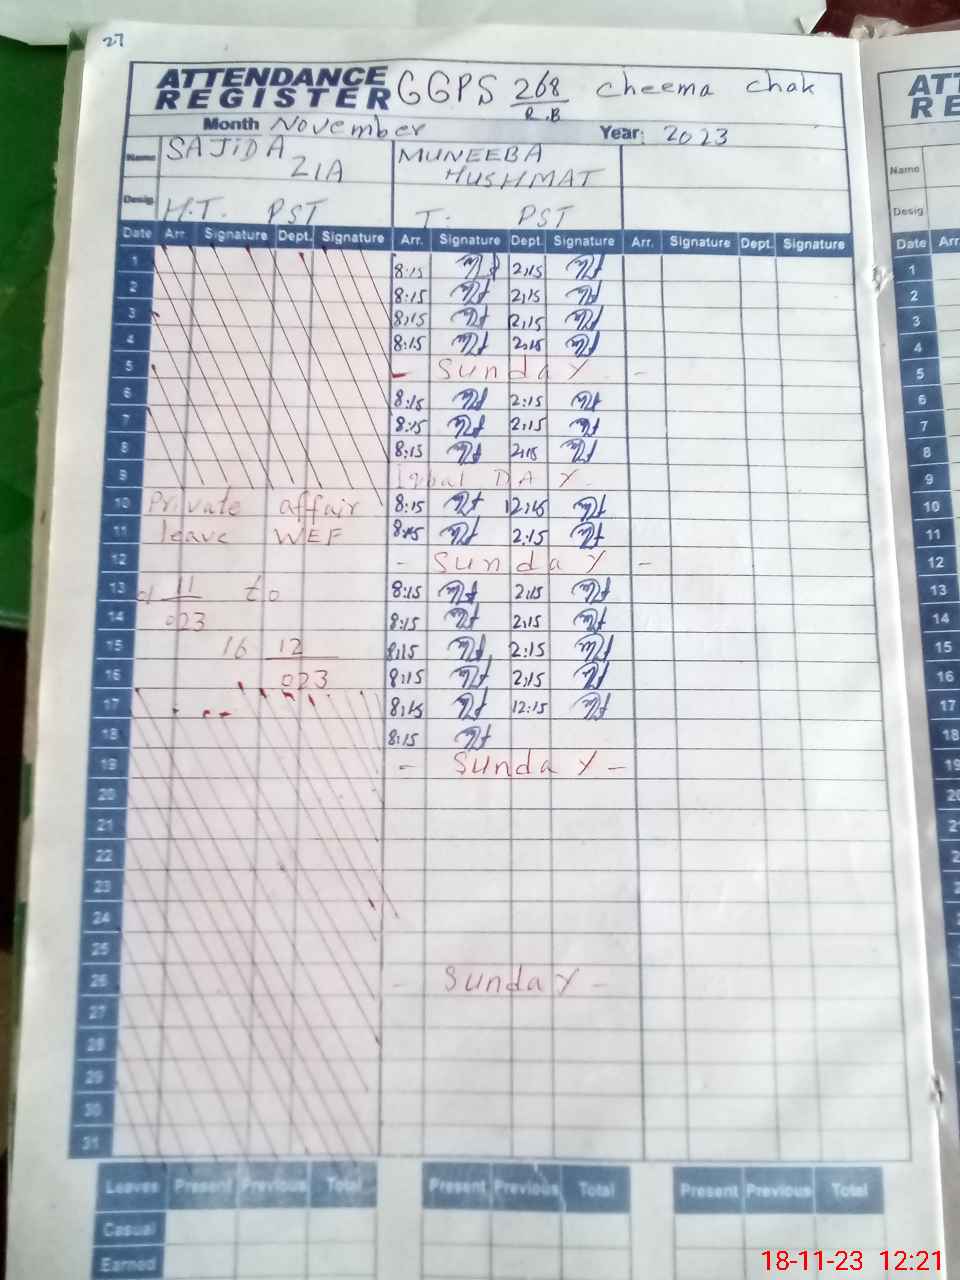 27
ATTENDANCE REGISTER GGPS 268/R.B Cheema Chak
Month November Year: 2023
Name SAJIDA ZIA MUNEEBA HUSHMAT
Desig. H.T. PST T. PST
Date Arr. Signature Dept. Signature Arr. Signature Dept. Signature Arr. Signature Dept. Signature
1 8:15 2:15
2 8:15 2:15
3 8:15 2:15
4 8:15 2:15
5 - Sunday -
6 8:15 2:15
7 8:15 2:15
8 8:15 2:15
9 Iqbal DAY
10 Private affair 8:15 12:15
11 leave WEF 8:15 2:15
12 - Sunday -
13 11 to 8:15 2:15
14 023 8:15 2:15
15 16 12 8:15 2:15
16 023 8:15 2:15
17 8:15 12:15
18 8:15
19 - Sunday -
20
21
22
23
24
25
26 - Sunday -
27
28
29
30
31
Leaves Present Previous Total Present Previous Total Present Previous Total
Casual
Earned
ATT
RE
Name
Desig
Date Arr
1
2
3
4
5
6
7
8
9
10
11
12
13
14
15
16
17
18
19
20
18-11-23 12:21